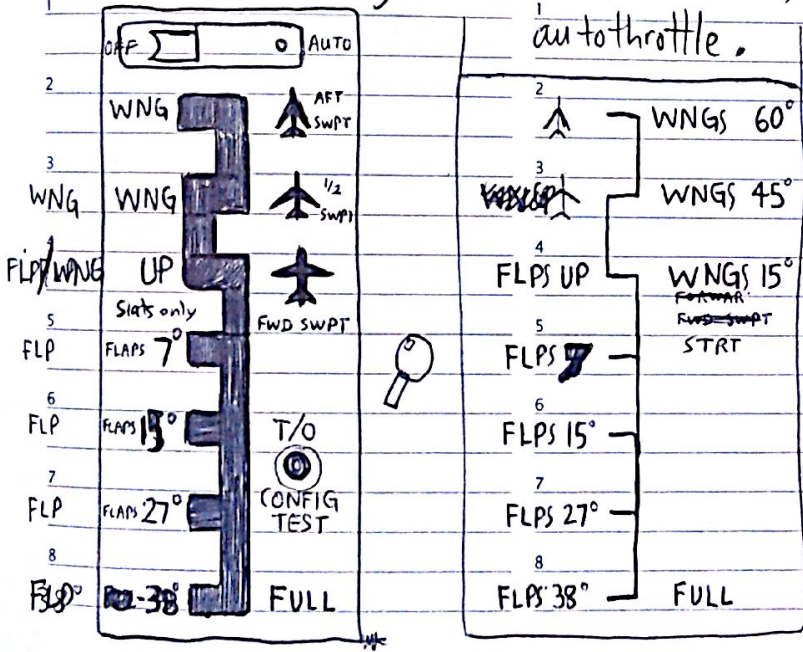 autothrottle.
OFF AUTO
2 WNG AFT SWPT
3 WNG WNG 1/2 SWPT
FLP/WNG UP
Slats only
FWD SWPT
5 FLP FLAPS 7°
6 FLP FLAPS 15° T/O
7 FLP FLAPS 27° CONFIG TEST
8 38° FULL
2 WNGS 60°
3 WNGS 45°
4 FLPS UP WNGS 15°
FORWAR
FWD-SWPT
STRT
5 FLPS 7
6 FLPS 15°
7 FLPS 27°
8 FLPS 38° FULL